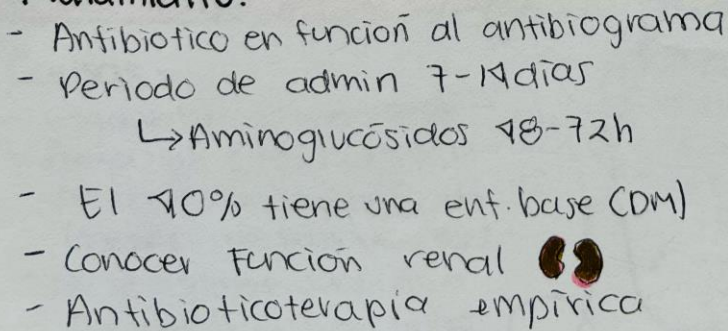 - Antibiotico en función al antibiograma
- Periodo de admin 7-14 días
↳ Aminoglucósidos 48-72h
- El 40% tiene una enf. base (DM)
- Conocer función renal
- Antibioticoterapia empírica